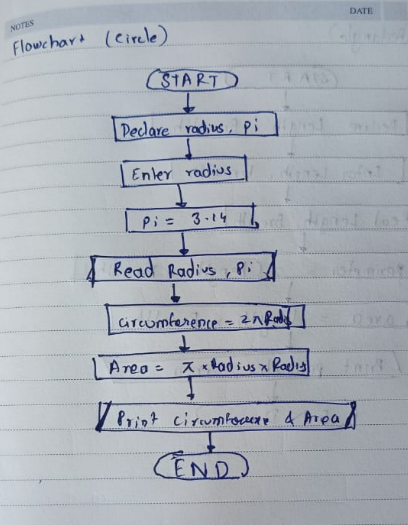 NOTES
DATE
Flowchart (circle)
START
Declare radius, Pi
Enter radius
Pi = 3.14
Read Radius, Pi
circumference = 2π
Area = π × Radius × Radius
Print circumference & Area
END